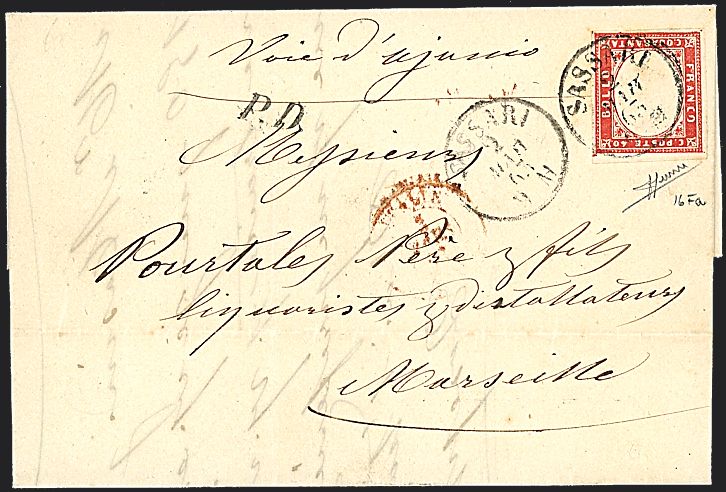 Voie d'ajaccio
P.D.
Messieurs
Pourtales Père & fils
liquoristes & distillateurs
Marseille
SASSARI
SASSARI
2
ITALIA
FRANCO
BOLLO
C. POSTE 40
CINQUANTA
16Fa